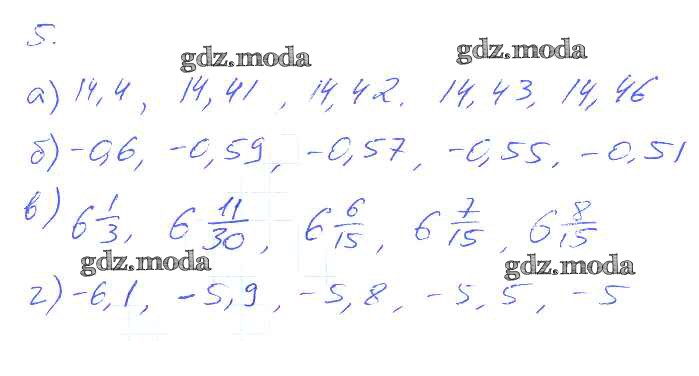 5.
gdz.moda gdz.moda
а) 14,4, 14,41, 14,42. 14,43, 14,46
б) -0,6, -0,59, -0,57, -0,55, -0,51
в) 6 1/3, 6 11/30, 6 6/15, 6 7/15, 6 8/15
gdz.moda gdz.moda
г) -6,1, -5,9, -5,8, -5,5, -5